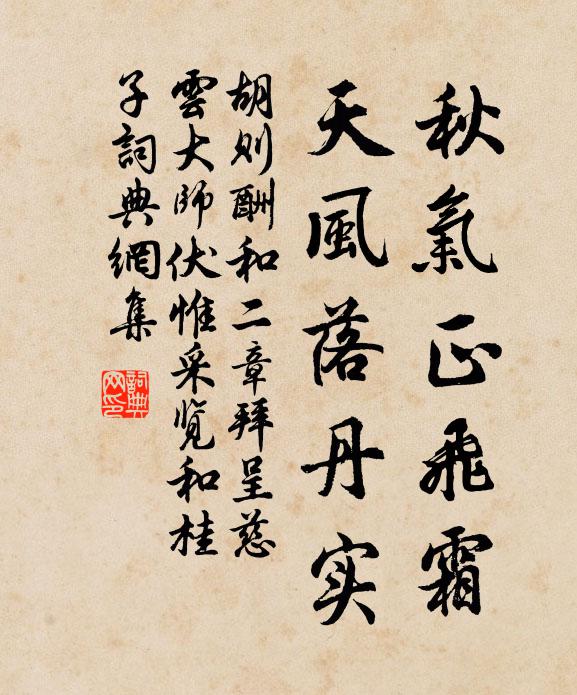 秋氣正飛霜
天風落丹实
胡则酬和二章拜呈慈
雲大師伏惟采览和桂
子詞典網集
詞典网印